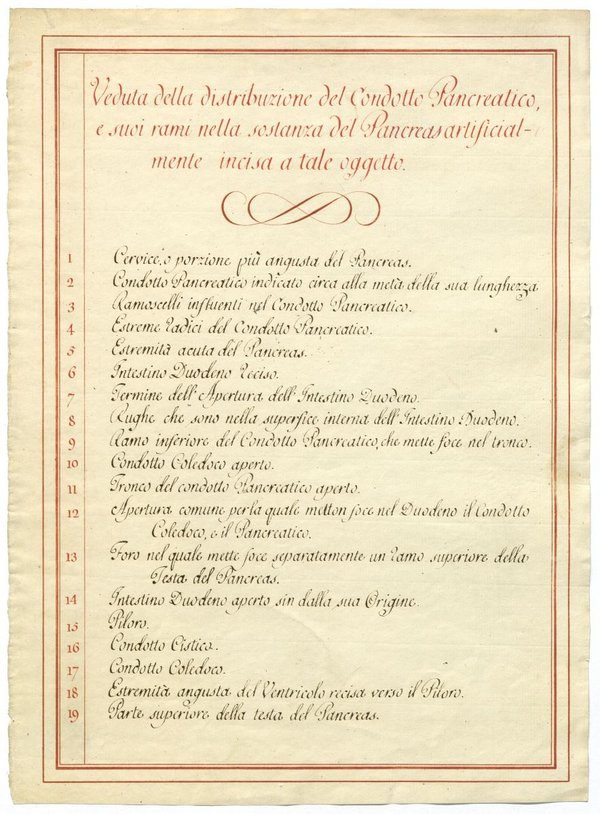 Veduta della distribuzione del Condotto Pancreatico,
e suoi rami nella sostanza del Pancreas artificial-
mente incisa a tale oggetto.
1 Cervice, o porzione più angusta del Pancreas.
2 Condotto Pancreatico indicato circa alla metà della sua lunghezza
3 Ramoscelli influenti nel Condotto Pancreatico.
4 Estreme radici del Condotto Pancreatico.
5 Estremità acuta del Pancreas.
6 Intestino Duodeno reciso.
7 Termine dell'Apertura dell'Intestino Duodeno.
8 Rughe che sono nella superfice interna dell'Intestino Duodeno.
9 Ramo inferiore del Condotto Pancreatico, che mette foce nel tronco.
10 Condotto Coledoco aperto.
11 Tronco del condotto Pancreatico aperto.
12 Apertura comune per la quale metton foce nel Duodeno il Condotto
Coledoco, e il Pancreatico.
13 Foro nel quale mette foce separatamente un ramo superiore della
Testa del Pancreas.
14 Intestino Duodeno aperto sin dalla sua Origine.
15 Piloro.
16 Condotto Cistico.
17 Condotto Coledoco.
18 Estremità angusta del Ventricolo recisa verso il Piloro.
19 Parte superiore della testa del Pancreas.